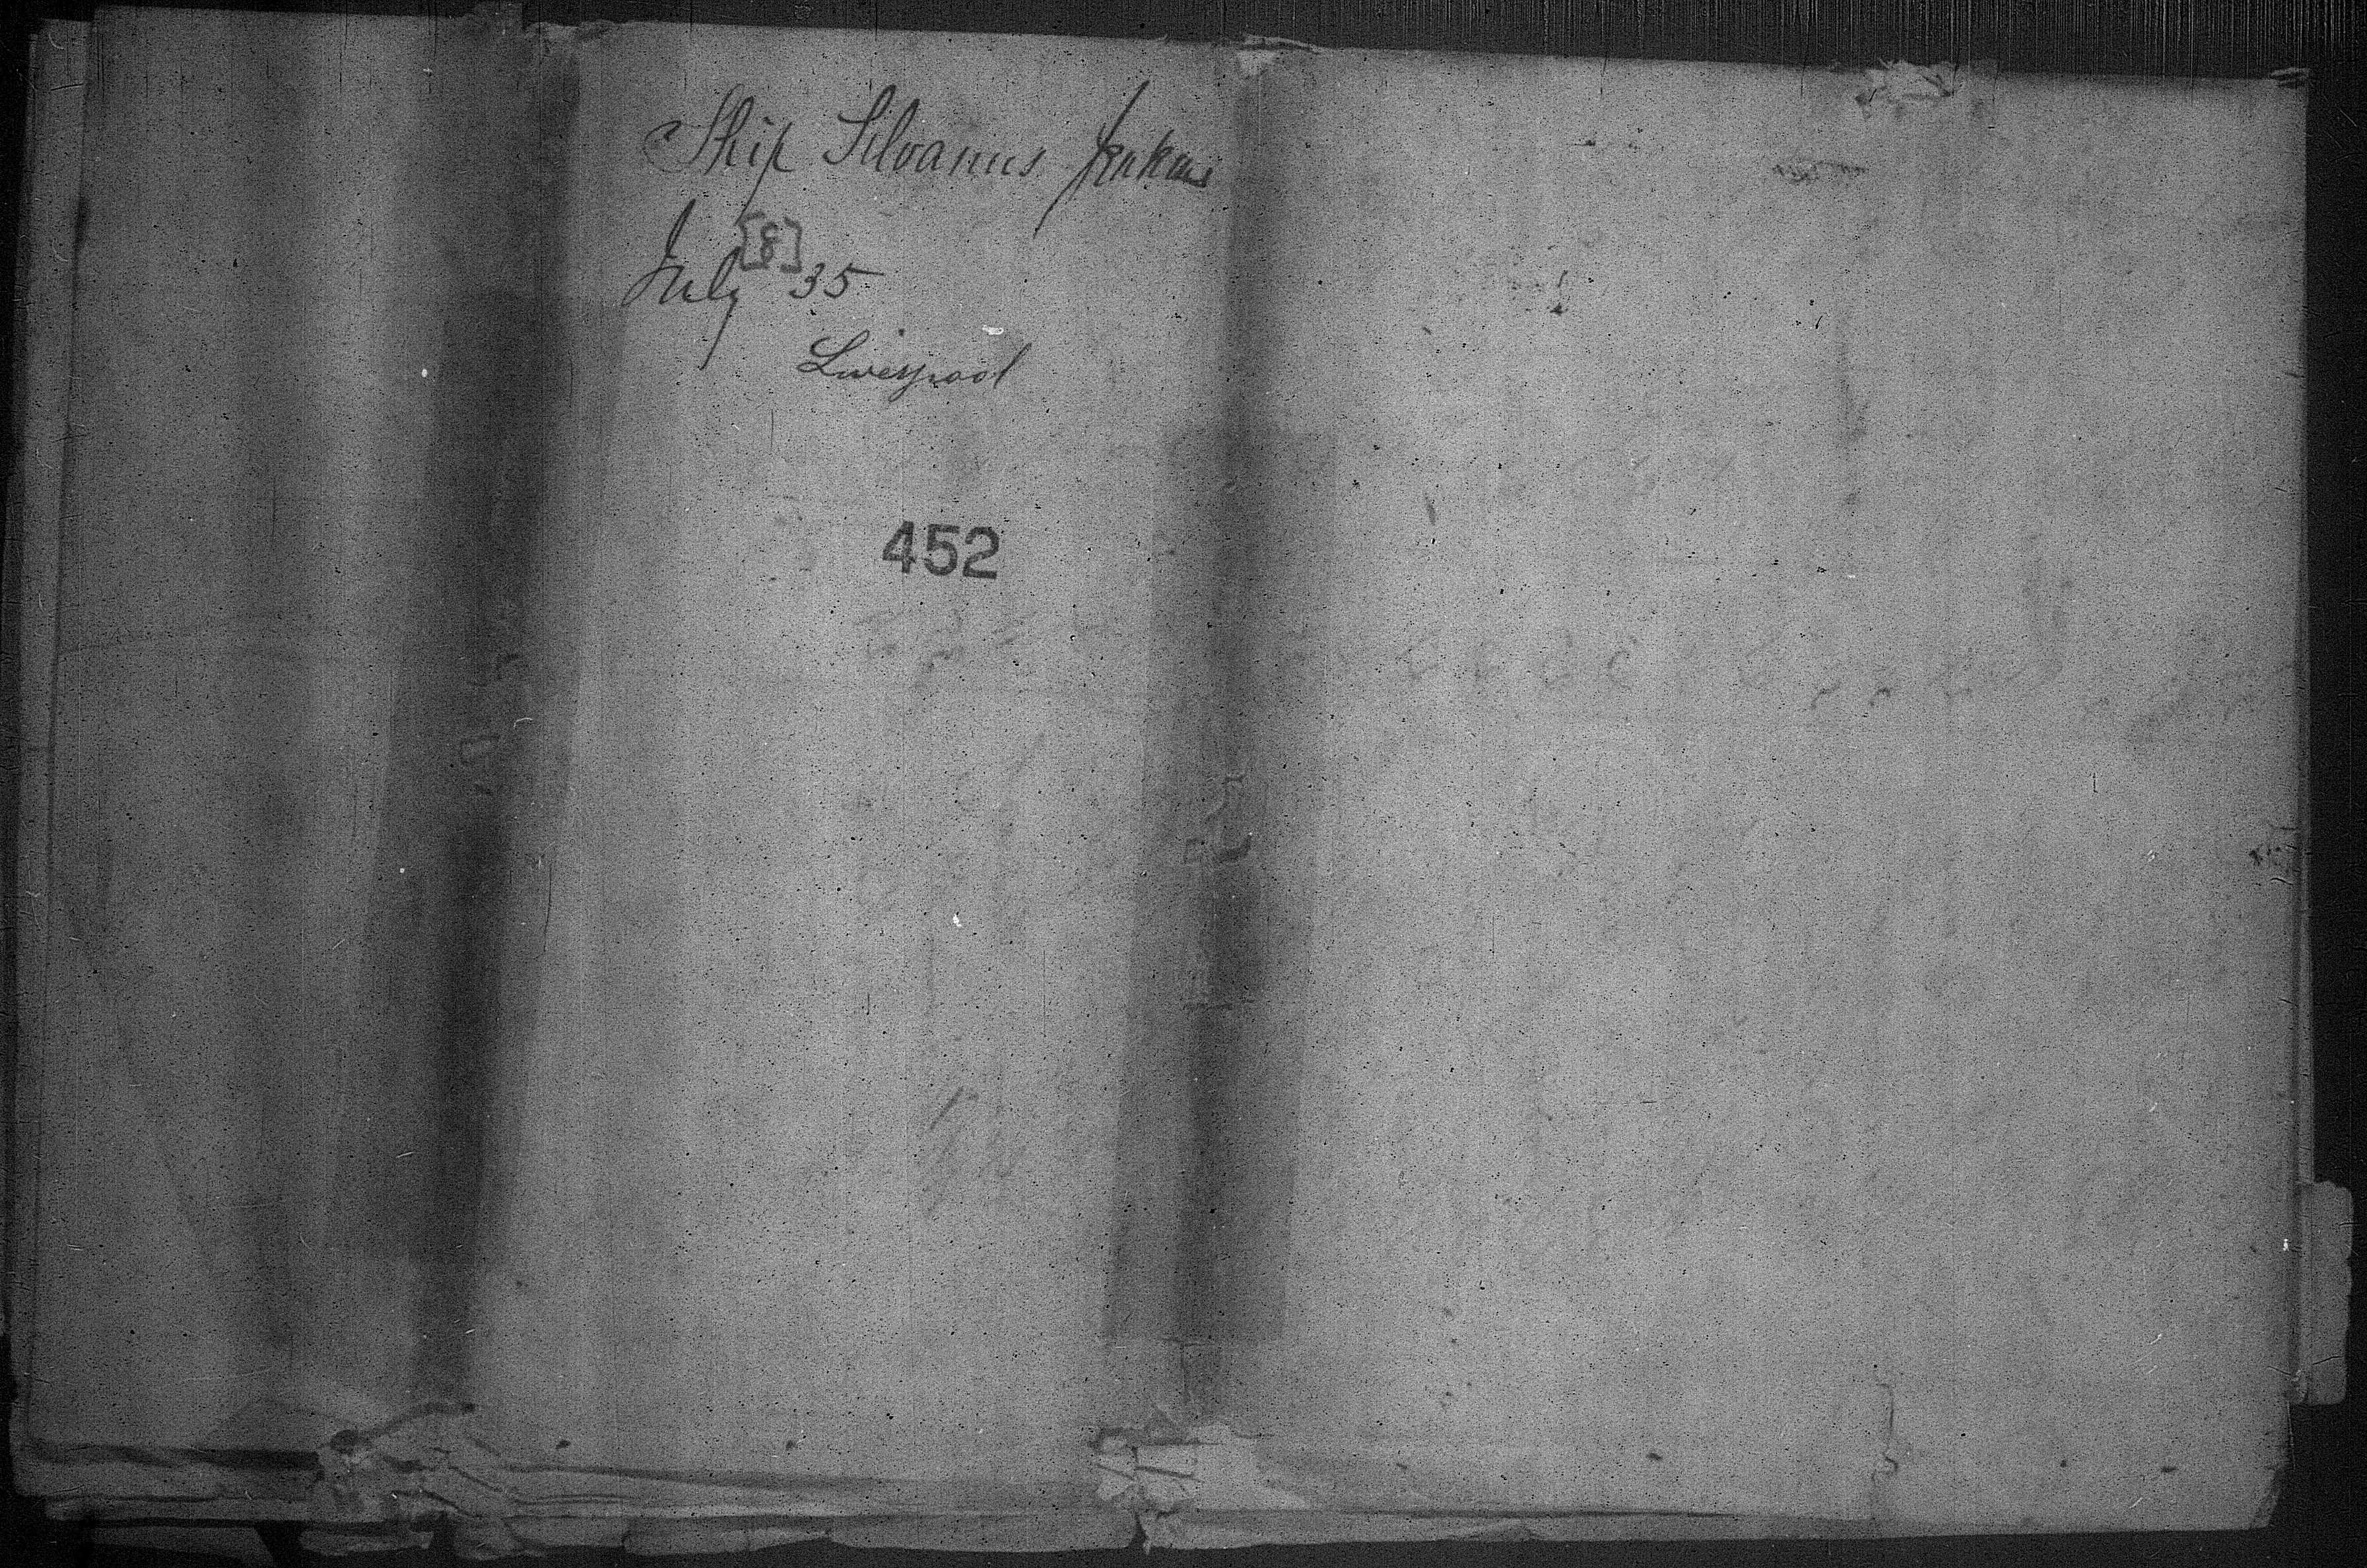 Ship Silvanus Jenkins
July [8] 35
Liverpool
452